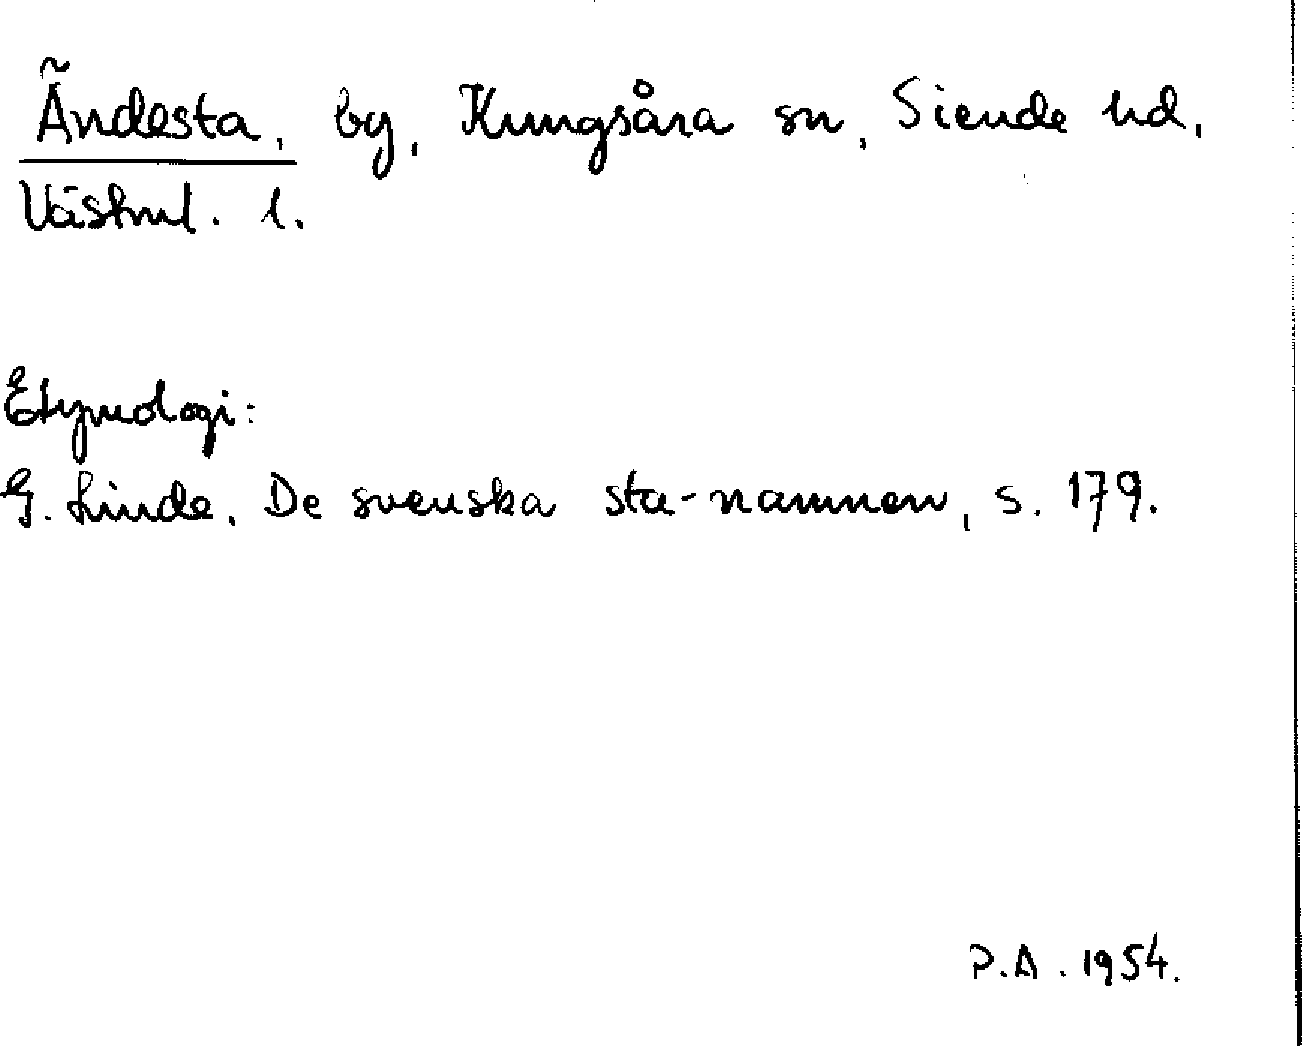 Ändesta, by, Kungsåra sn, Siende hd,
Västml. l.
Etymologi:
G. Linde, De svenska sta-namnen, s. 179.
P.A. 1954.